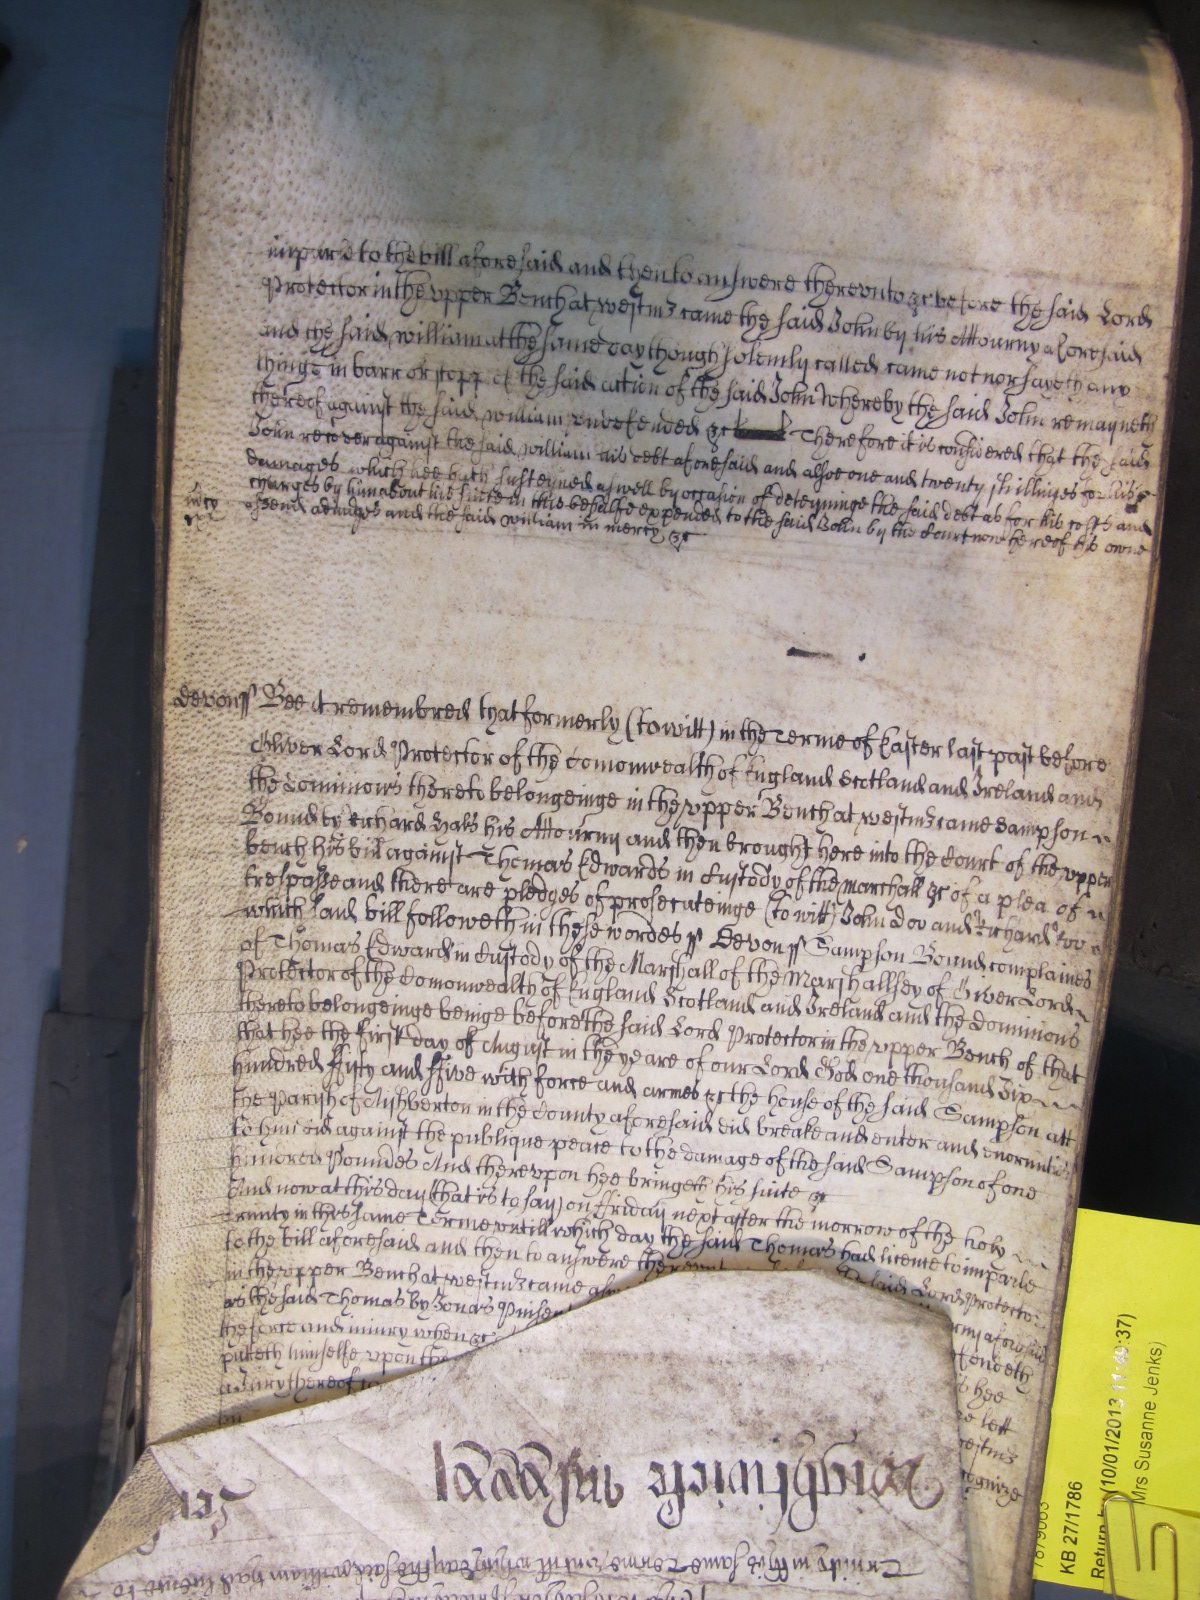 imparle to the bill aforesaid and then to answere therevnto &c before the said Lord
Protector in the vpper Bench at westm̃ came the said John by his Attourny aforesaid
and the said william at the same day though solemly called came not nor sayeth any
thinge in barr or of the said action of the said John whereby the said John remayneth
thereof against the said william vndefended &c Therefore it is considered that the said
John recover against the said william his debt aforesaid and alsoe one and twenty shillinges for his
damages which hee hath susteyned aswell by occasion of deteyninge the said debt as for his costs and
charges by him about his suite in this behalfe expended to the said John by the Court now here of his owne
assent adiudged and the said william in mercy &c
m̃cy
devon ss Bee it remembred that formerly (to witt) in the Terme of Easter last past before
Oliver Lord Protector of the Comonwealth of England Scotland and Ireland and
the dominions thereto belongeinge in the vpper Bench at westm̃ came Sampson
Bound by Richard his Attourny and then brought here into the Court of the vpper
bench his bill against Thomas Edwards in Custody of the marshall &c of a plea of
trespasse and there are pledges of prosecuteinge (to witt) John Doo and Richard Roo
which said bill followeth in these wordes ss Devon ss Sampson Bound complaines
of Thomas Edwards in Custody of the Marshall of the Marshallsey of Oliver Lord
Protector of the Comonwealth of England Scotland and Ireland and the dominions
thereto belongeinge beinge before the said Lord Protector in the vpper Bench of that
that hee the first day of August in the yeare of our Lord God one thousand six
hundred ffifty and ffive with force and armes &c the house of the said Sampson att
the Parish of in the County aforesaid did breake and enter and enormities
to him did against the publique peace to the damage of the said Sampson of one
hundred Poundes And therevpon hee bringeth his suite &c
And now at this day (that is to say) on ffriday next after the morrow of the holy
Trinity in this same Terme vntill which day the said Thomas had licence to imparle
to the bill aforesaid and then to answere therevnt said Lord Protector
in the vpper Bench at westm̃ came as aforesaid
as the said Thomas by defendeth
the force and iniury when &c hee
putteth himselfe vpon the lett
a Jury thereof westm̃
Trinity in this same Terme vntill which day the said william had licence to
KB 27/1786
Return by (10/01/2013 :37)
Mrs Susanne Jenks)